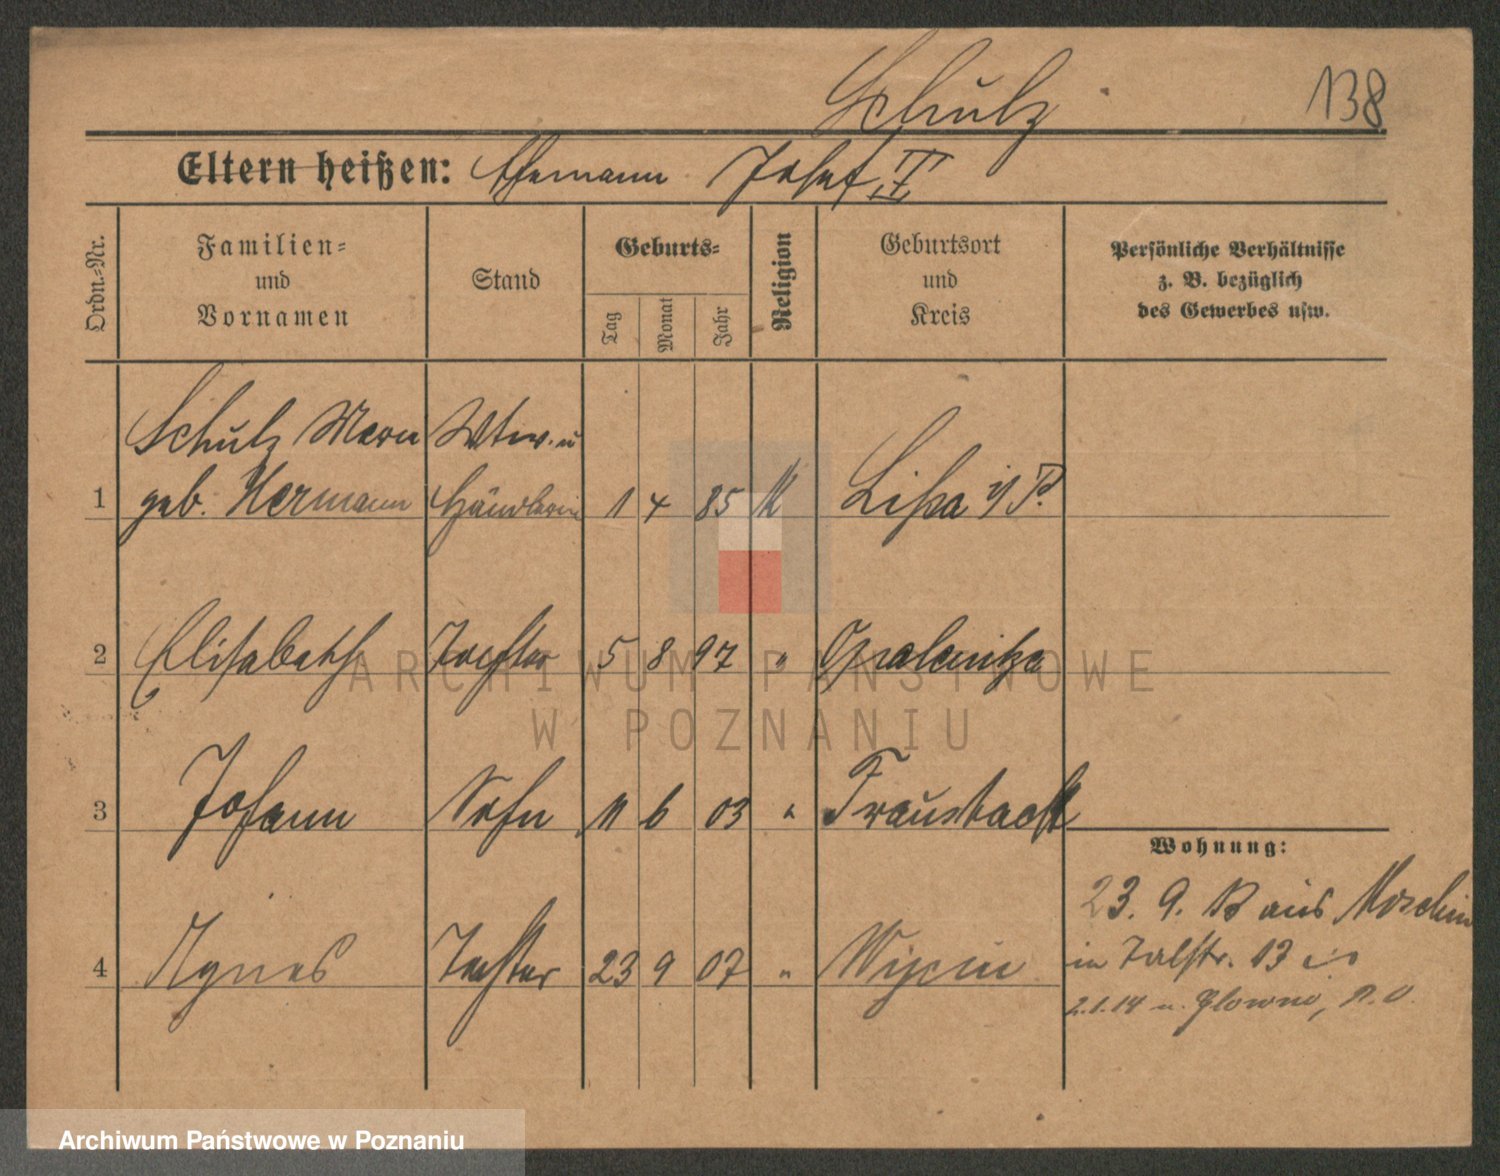 Schulz
138
Eltern heißen: Ehemann Josef II
Ordn.-Nr.
Familien-
und
Vornamen
Stand
Geburts-
Tag
Monat
Jahr
Religion
Geburtsort
und
Kreis
Persönliche Verhältnisse
z. B. bezüglich
des Gewerbes usw.
Schulz Wwe. u
1 geb. Hermann Händlerin 1 4 85 K Lissa i/P.
2 Elisabeth Tochter 5 8 97 " Opalenitza
3 Johann Sohn 11 6 03 " Fraustadt
Wohnung:
23. 9. 13 aus Moschin
4 Agnes Tochter 23 9 07 "
in Talstr. 13
2.1.14 n. Glowno, P. O.
ARCHIWUM PAŃSTWOWE
W POZNANIU
Archiwum Państwowe w Poznaniu